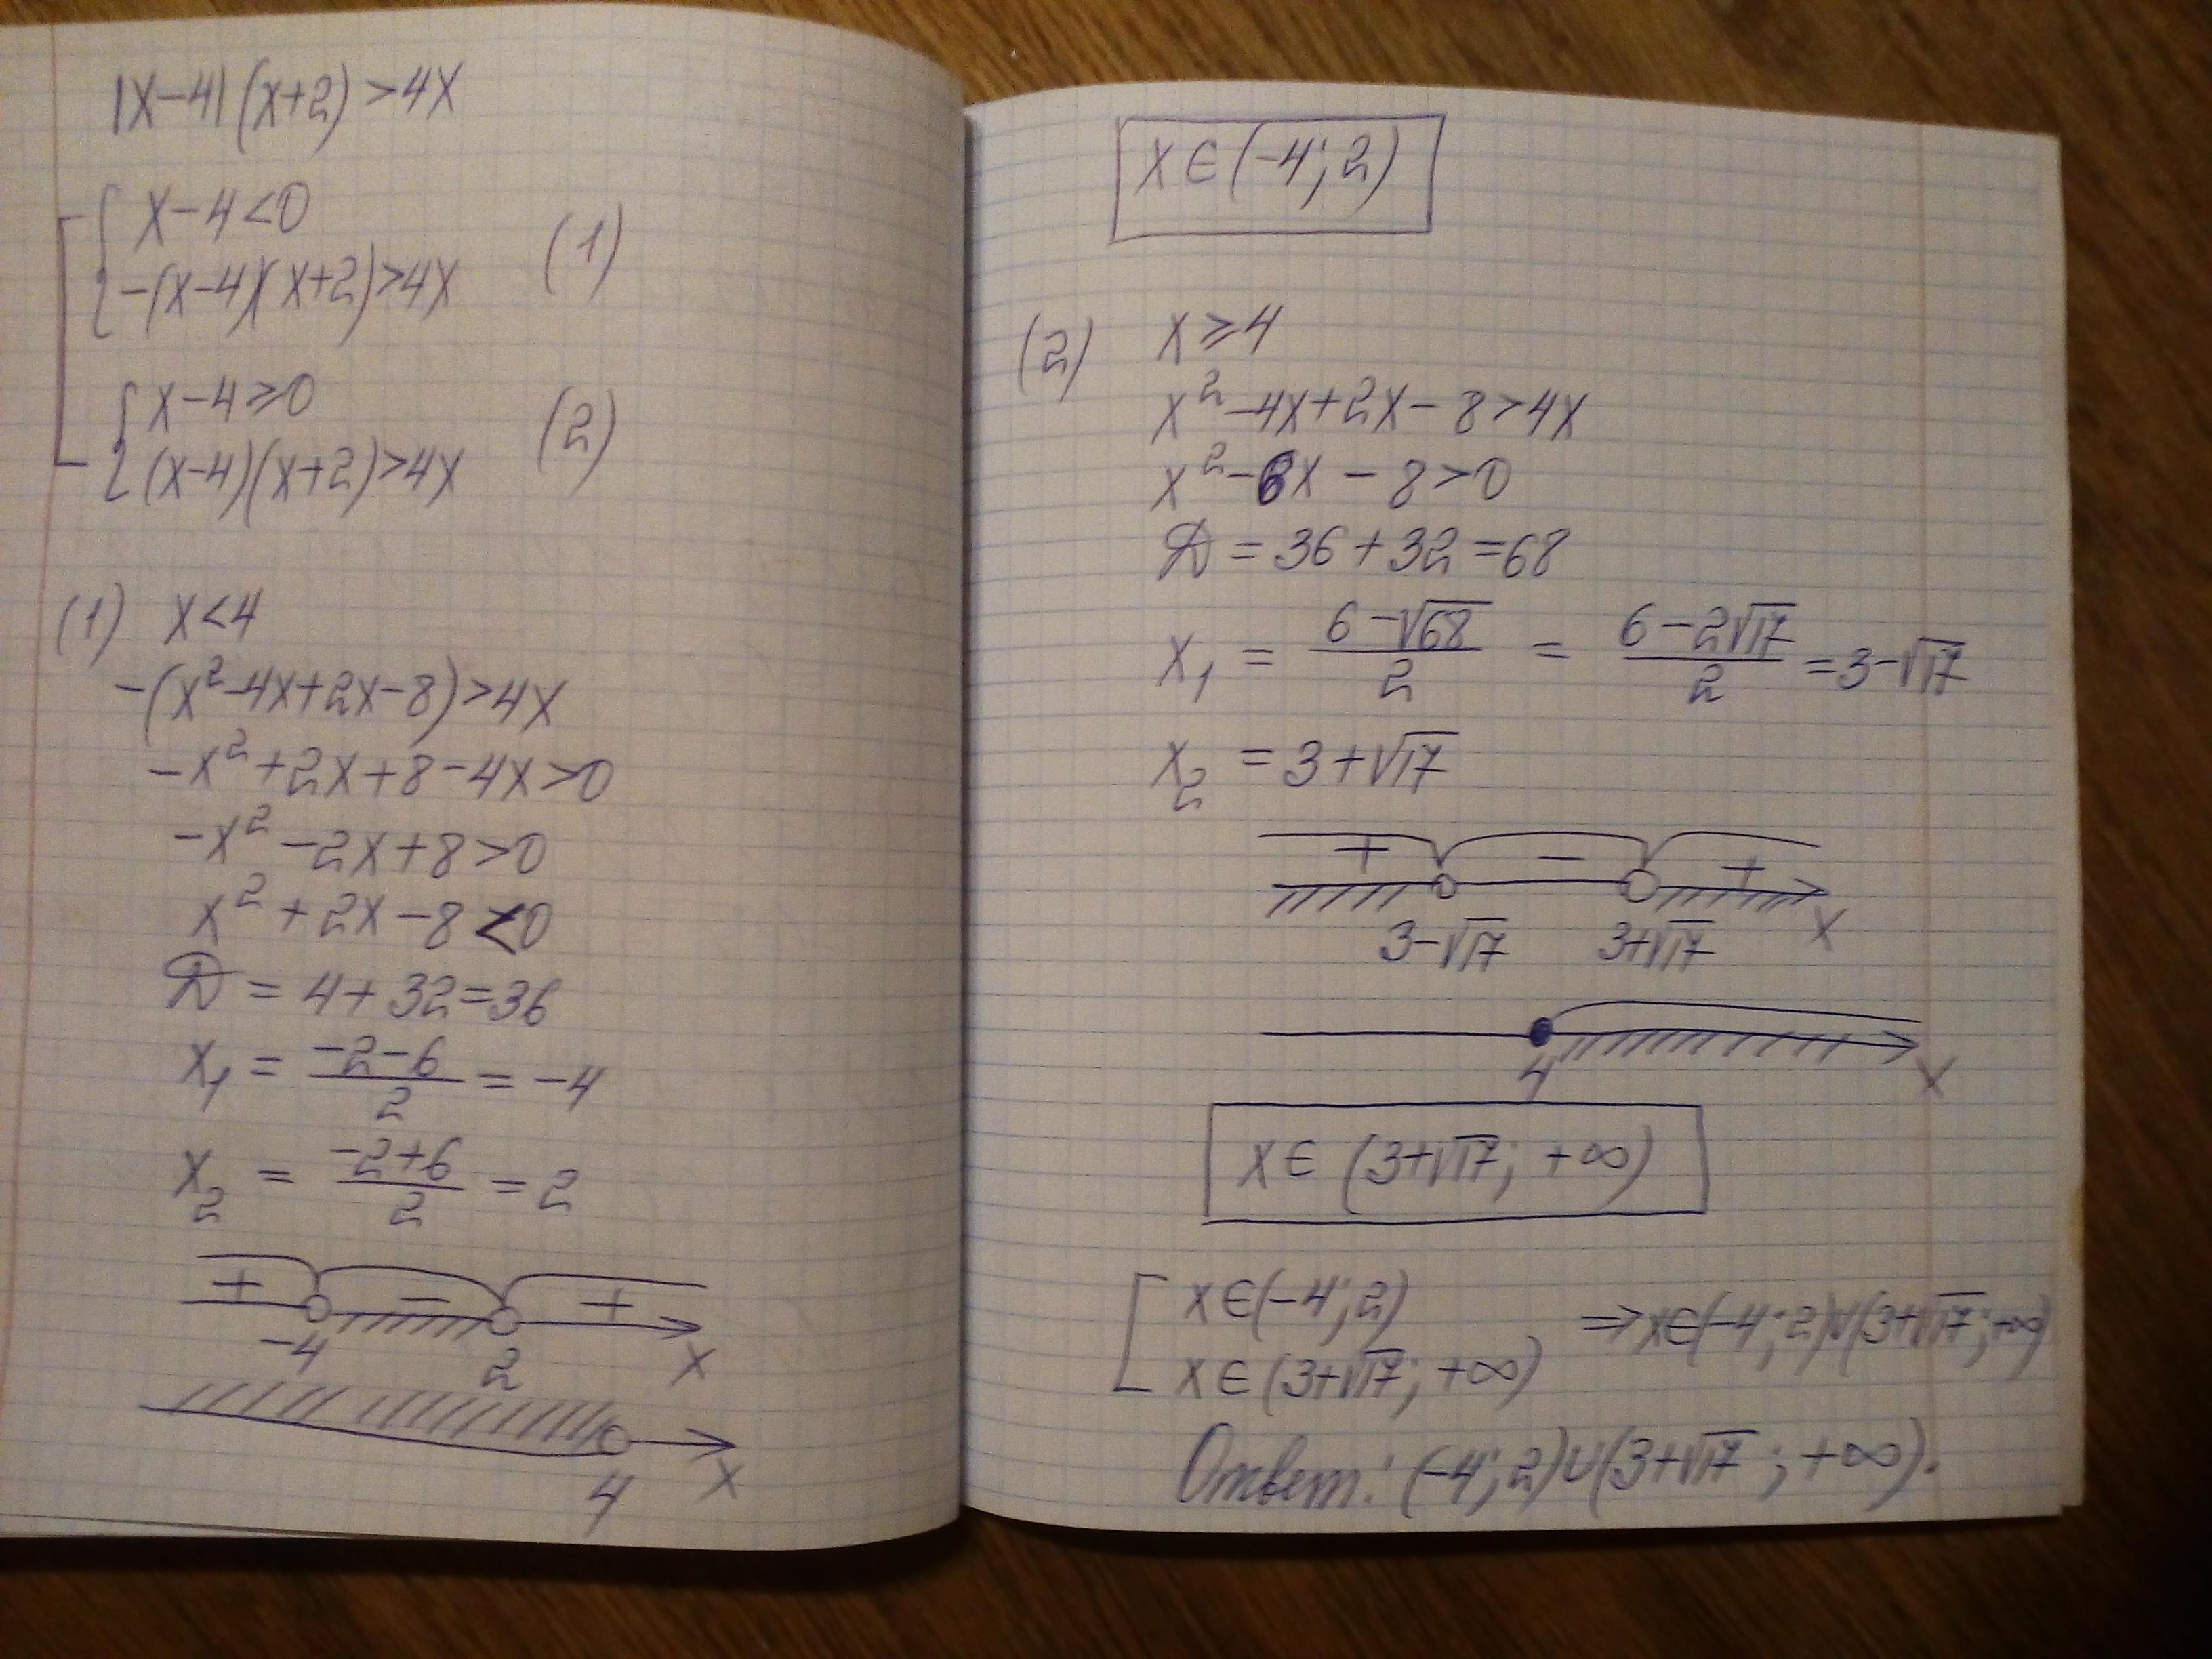 |x-4|(x+2)>4x
x-4<0
-(x-4)(x+2)>4x (1)
x-4≥0
(x-4)(x+2)>4x (2)
(1) x<4
-(x²-4x+2x-8)>4x
-x²+2x+8-4x>0
-x²-2x+8>0
x²+2x-8<0
D=4+32=36
x₁=(-2-6)/2=-4
x₂=(-2+6)/2=2
+ - +
-4 2 x
4 x
x∈(-4;2)
(2) x≥4
x²-4x+2x-8>4x
x²-6x-8>0
D=36+32=68
x₁=(6-√68)/2=(6-2√17)/2=3-√17
x₂=3+√17
+ - +
3-√17 3+√17 x
4 x
x∈(3+√17;+∞)
x∈(-4;2)
x∈(3+√17;+∞) ⇒x∈(-4;2)∪(3+√17;+∞)
Ответ: (-4;2)∪(3+√17;+∞).